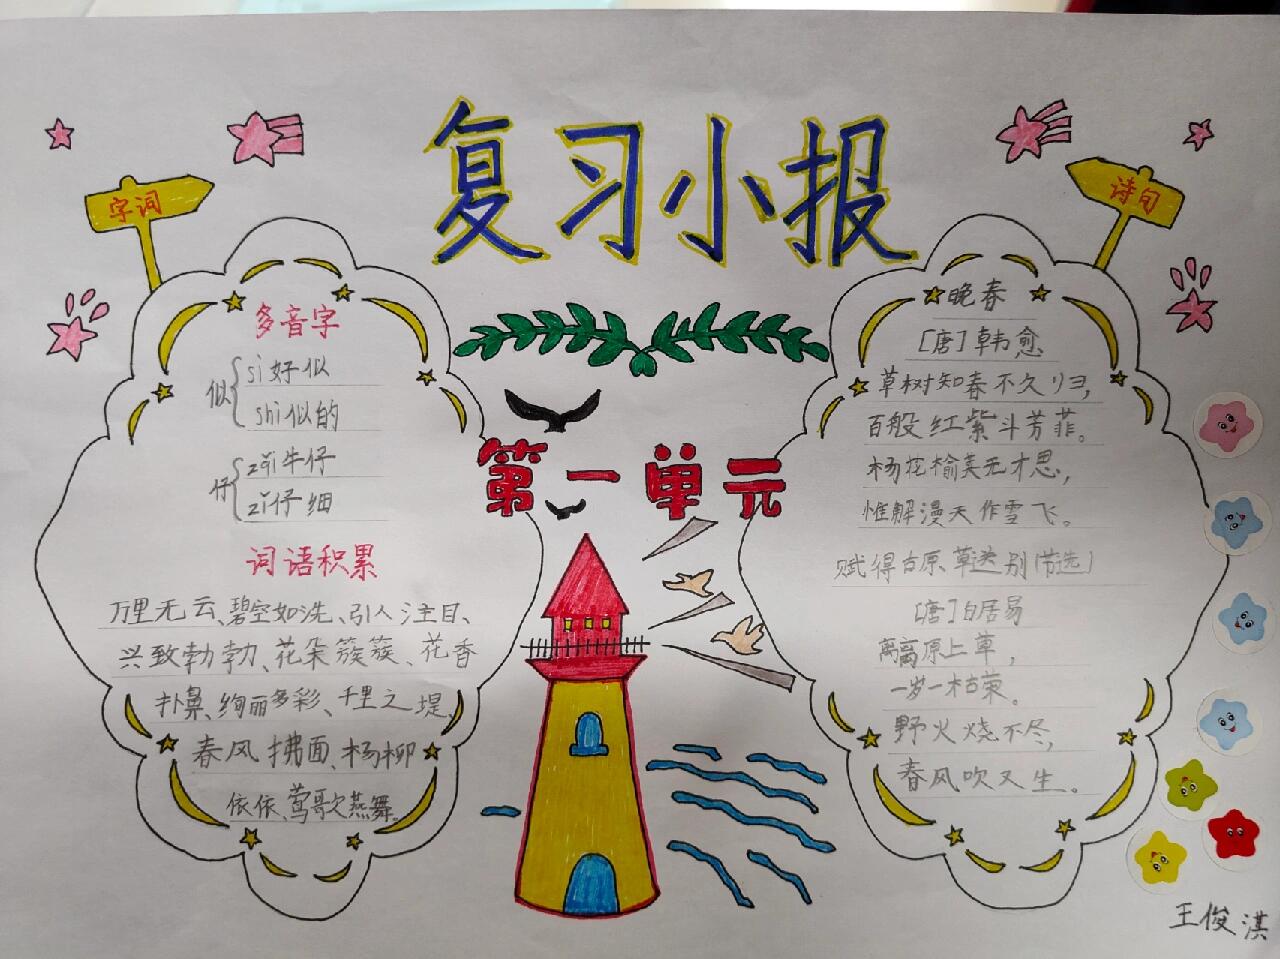 复习小报
第一单元
字词
多音字
似
sì好似
shì似的
仔
zǎi牛仔
zǐ仔细
词语积累
万里无云、碧空如洗、引人注目、
兴致勃勃、花朵簇簇、花香
扑鼻、绚丽多彩、千里之堤、
春风拂面、杨柳
依依、莺歌燕舞。
诗句
晚春
[唐]韩愈
草树知春不久归,
百般红紫斗芳菲。
杨花榆荚无才思,
惟解漫天作雪飞。
赋得古原草送别(节选)
[唐]白居易
离离原上草,
一岁一枯荣。
野火烧不尽,
春风吹又生。
王俊淇